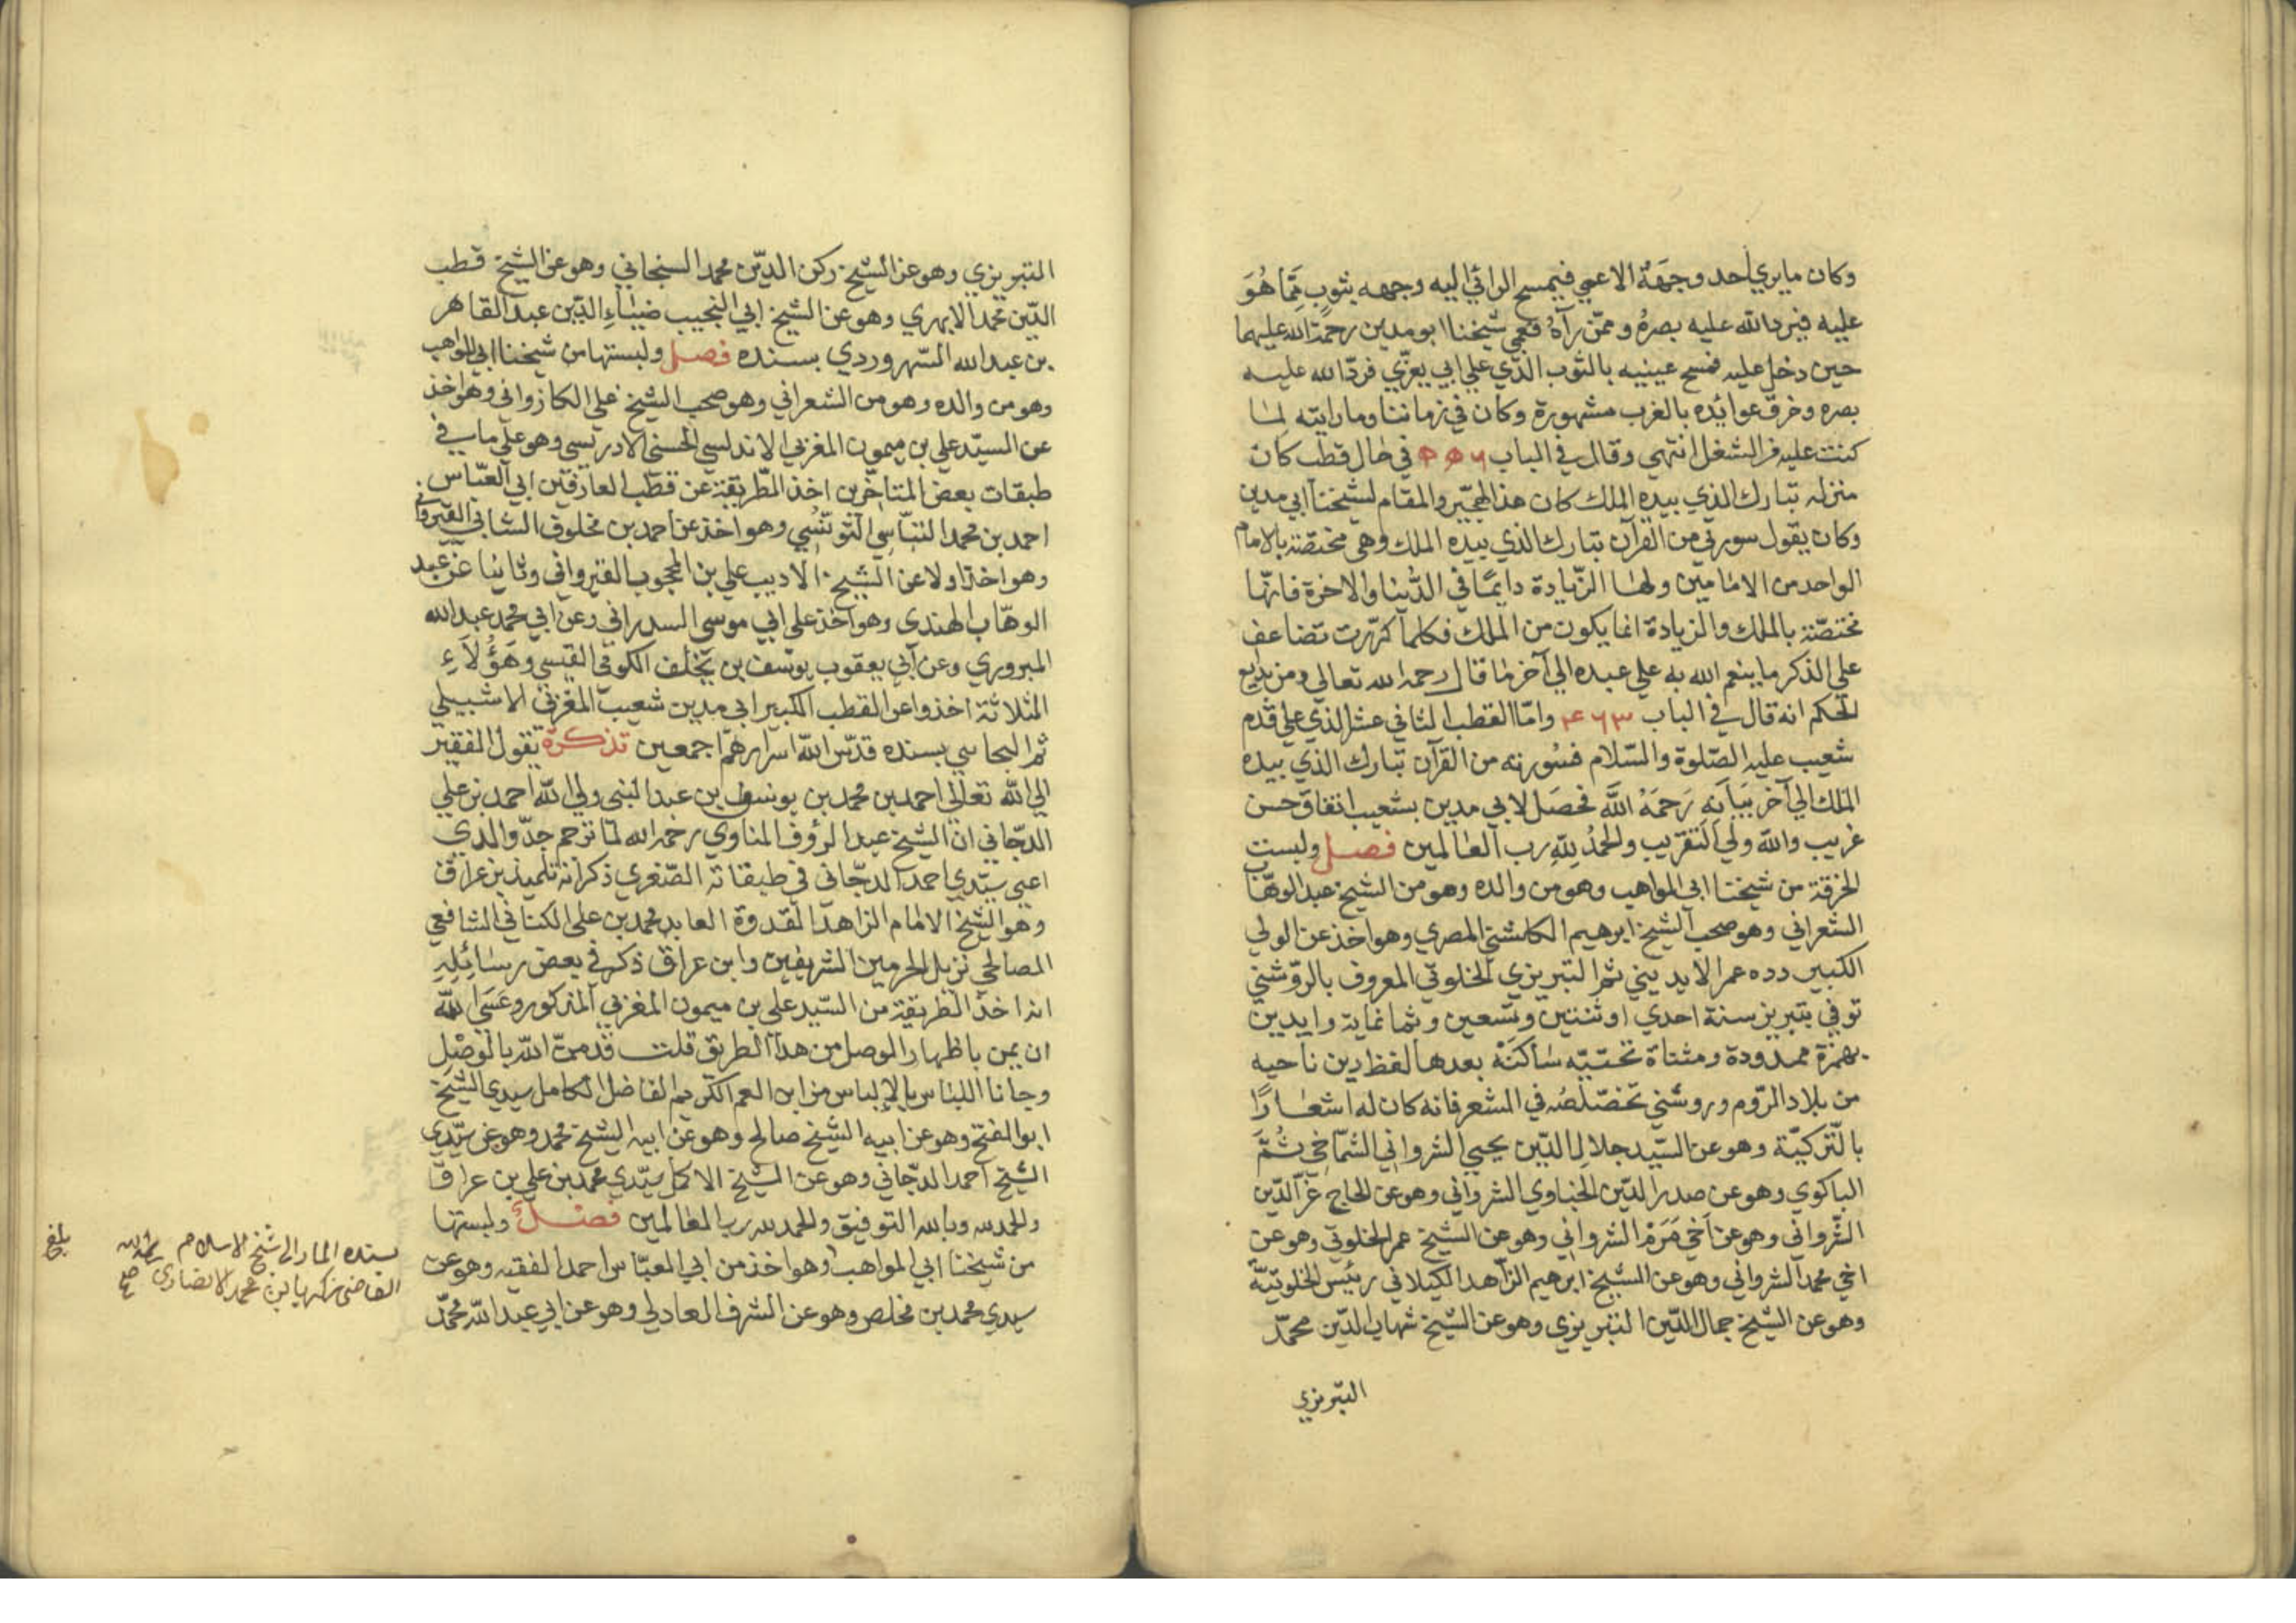 وكان ما يرى احد وجهه الا عمي فيمسح الرائي اليه وجهه بثوب مما هو
عليه فيرد الله عليه بصره وممن رآه فعمي شيخنا ابو مدين رحمة الله عليهما
حين دخل عليه فمسح عينيه بالثوب الذي على ابي يعزي فرد الله عليه
بصره وخرق عوائده بالغرب مشهورة وكان في زماننا وما رايته لما
كنت عليه من الشغل انتهى وقال في الباب ٥٥٦ في حال قطب كان
منزله تبارك الذي بيده الملك كان هذا الهجير والمقام لشيخنا ابي مدين
وكان يقول سورتي من القرآن تبارك الذي بيده الملك وهي مختصة بالامام
الواحد من الامامين ولها الزيادة دايما في الدنيا والاخرة فانها
مختصة بالملك والزيادة انما يكون من الملك فكلما كررت تضاعف
على الذكر ما ينعم الله به على عبده الى آخر ما قال رحمه الله تعالى ومن بديع
الحكم انه قال في الباب ٤٦٣ واما القطب الثاني عشر الذي على قدم
شعيب عليه الصلوة والسلام فسورته من القرآن تبارك الذي بيده
الملك الى آخر بيانه رحمه الله فحصل لابي مدين بشعيب اتفاق حسن
غريب والله ولي التقريب والحمد لله رب العالمين فصل ولبست
الخرقة من شيخنا ابي المواهب وهو من والده وهو من الشيخ عبد الوهاب
الشعراني وهو صحب الشيخ ابرهيم الكلشني المصري وهو اخذ عن الولي
الكبير دده عمر الايديني ثم التبريزي الخلوتي المعروف بالروشني
توفي بتبريز سنة احدى او ثنتين وتسعين وثمانماية وايدين
بهمزة ممدودة ومثناة تحتيه ساكنة بعدها لفظ دين ناحيه
من بلاد الروم وروشني تخصلصه في الشعر فانه كان له اشعارا
بالتركية وهو عن السيد جلال الدين يحيى الشرواني الشماخي ثم
الباكوي وهو عن صدر الدين الخياوي الشرواني وهو عن الحاج عز الدين
الشرواني وهو عن اخي مرم الشرواني وهو عن الشيخ عمر الخلوتي وهو عن
اخي محمد الشرواني وهو عن الشيخ ابرهيم الزاهد الكيلاني رئيس الخلوتية
وهو عن الشيخ جمال الدين التبريزي وهو عن الشيخ شهاب الدين محمد
التبريزي
التبريزي وهو عن الشيخ ركن الدين محمد السنجاني وهو عن الشيخ قطب
الدين محمد الابهري وهو عن الشيخ ابي النجيب ضياء الدين عبد القاهر
بن عبد الله السهروردي بسنده فصل ولبستها من شيخنا ابي المواهب
وهو من والده وهو من الشعراني وهو صحب الشيخ علي الكازواني وهو اخذ
عن السيد علي بن ميمون المغربي الاندلسي الحسني الادريسي وهو على ما في
طبقات بعض المتاخرين اخذ الطريقة عن قطب العارفين ابي العباس
احمد بن محمد التباسي التونسي وهو اخذ عن احمد بن مخلوف الشابي القيرواني
وهو اخذ اولا عن الشيخ الاديب علي بن المحجوب القيرواني وثانيا عن عبد
الوهاب الهندي وهو اخذ على ابي موسى السدراني وعن ابي محمد عبد الله
المبروري وعن ابي يعقوب يوسف بن يخلف الكوفي القيسي وهؤلاء
الثلاثة اخذوا عن القطب الكبير ابي مدين شعيب المغربي الاشبيلي
ثم البجائي بسنده قدس الله اسرارهم اجمعين تذكرة يقول الفقير
الى الله تعالى احمد بن محمد بن يونس بن عبد النبي ولي الله احمد بن علي
الدجاني ان الشيخ عبد الرؤف المناوي رحمه الله لما ترجم جد والدي
اعني سيدي احمد الدجاني في طبقاته الصغرى ذكر انه تلميذ بن عراق
وهو الشيخ الامام الزاهد القدوة العابد محمد بن علي الكناني الشافعي
الصالحي نزيل الحرمين الشريفين وابن عراق ذكر في بعض رسائله
انه اخذ الطريقة من السيد علي بن ميمون المغربي المذكور وعسى الله
ان يمن باظهار الوصل من هذا الطريق قلت قد من الله بالوصل
وجانا اللباس بالإلباس من ابن العم الكريم الفاضل الكامل سيدي الشيخ
ابو الفتح وهو عن ابيه الشيخ صالح وهو عن ابيه الشيخ محمد وهو عن سيدي
الشيخ احمد الدجاني وهو عن الشيخ الاكمل سيدي محمد بن علي بن عراق
والحمد لله وبالله التوفيق والحمد لله رب العالمين فصل ولبستها
من شيخنا ابي المواهب وهو اخذ من ابي العباس احمد الفقيه وهو عن
سيدي محمد بن مخلص وهو عن الشرف العادلي وهو عن ابي عبد الله محمد
بسنده المار الى شيخ الاسلام
القاضي زكريا بن محمد الانصاري صح
بلغ